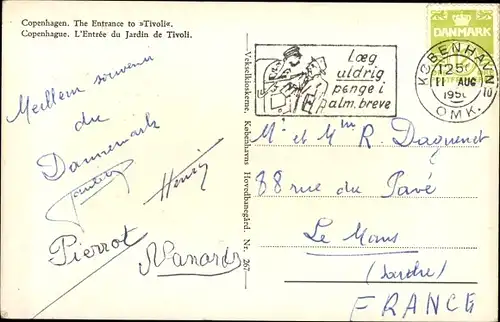 Copenhagen. The Entrance to »Tivoli«.
Copenhague. L'Entrée du Jardin de Tivoli.
Meilleur souvenir
du
Dannemark
Henri
Pierrot
Vekselkioskerne, Københavns Hovedbanegård. Nr. 267.
Læg
aldrig
penge i
alm. breve
DANMARK
KØBENHAVN
11 AUG
OMK.
Mr et Mme R. Daguenet
88 rue du Pavé
Le Mans
(Sarthe)
FRANCE